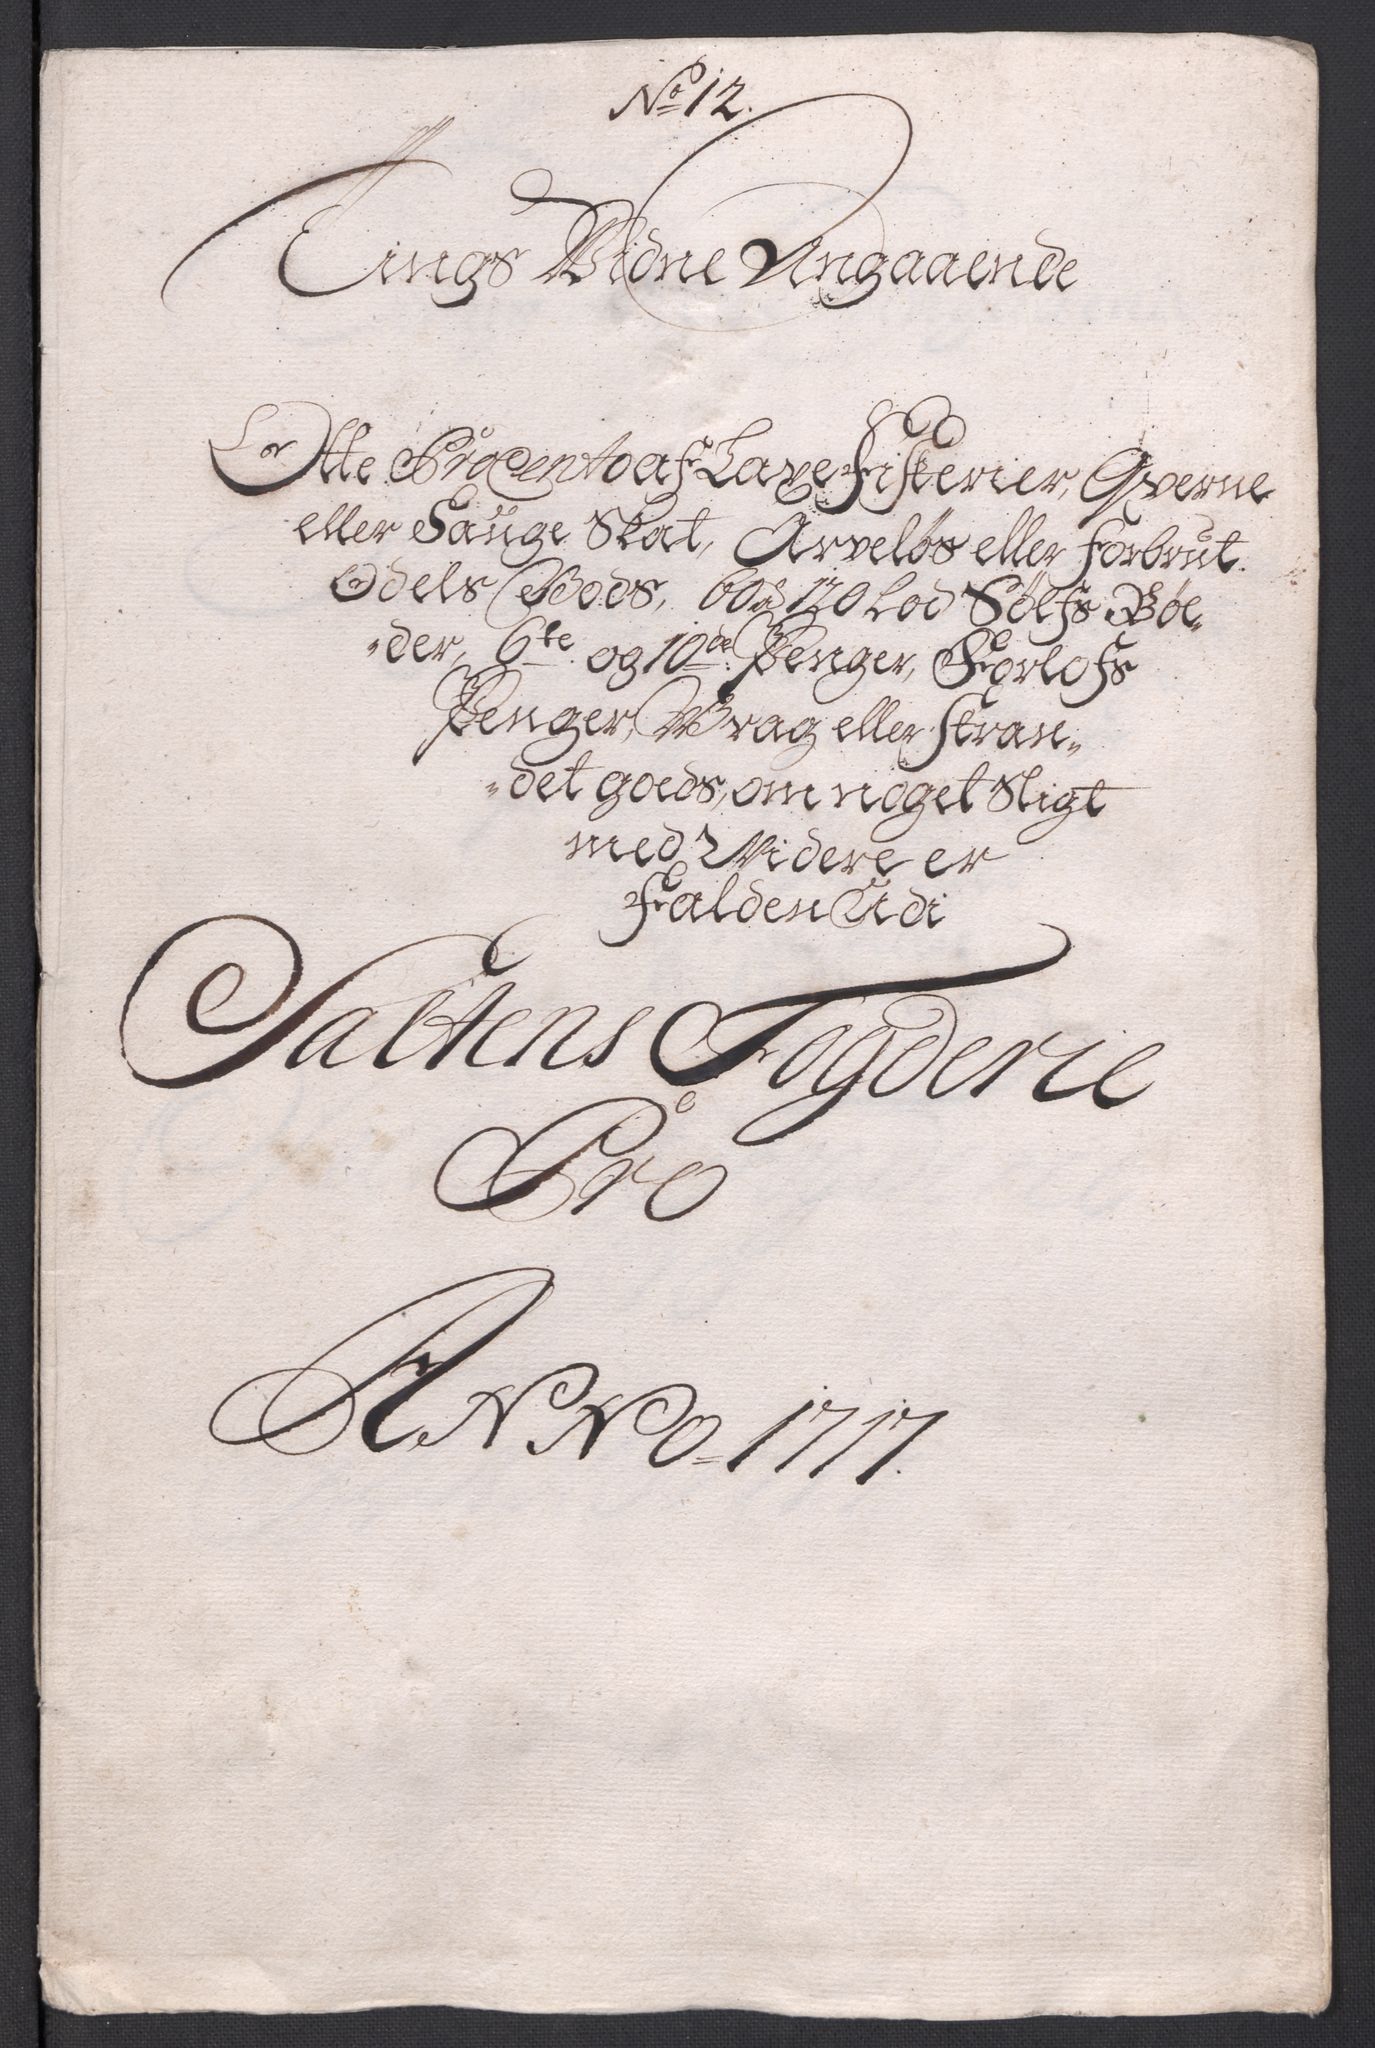 No 12.
Tings Widne Angaaende
Otte Procento af Laxe Fisterier, Qverne
eller Sauge Skat, Arveløs eller forbrut
Odels Gods, 60 à 120 Lod Sølfs Bøe„
„der, 6te og 10de Penger, Forlofs
Penger, Wrag eller stran„
„det goeds, om noget Sligt
med Widere er
Falden Udi
Saltens Fogderie
Pro
ANNO 1717.